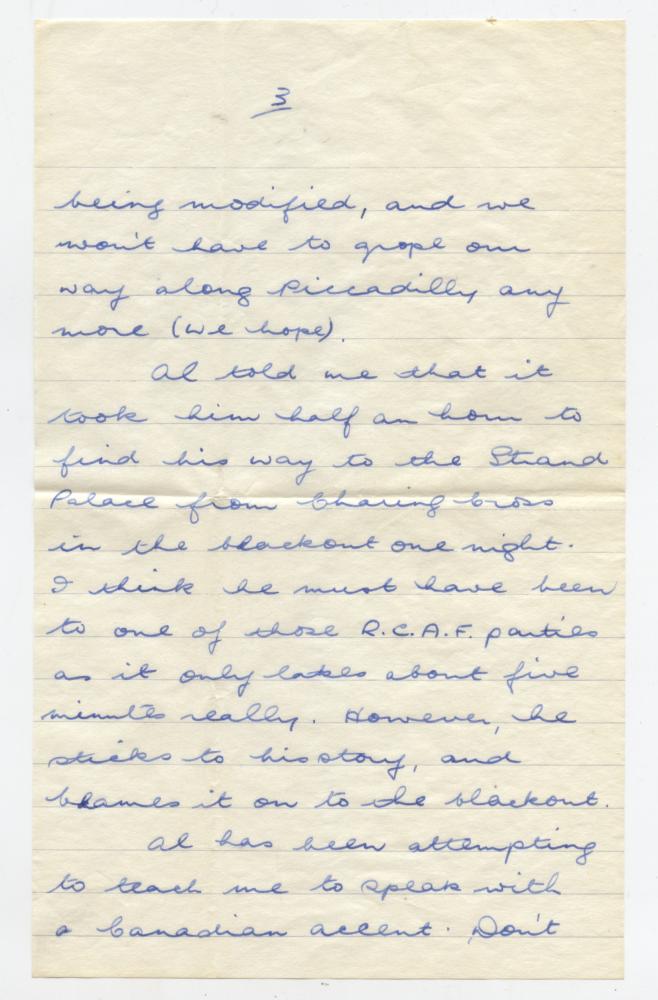 3
being modified, and we
won't have to grope our
way along Piccadilly any
more (we hope).
Al told me that it
took him half an hour to
find his way to the Strand
Palace from Charing Cross
in the blackout one night.
I think he must have been
to one of those R.C.A.F. parties
as it only takes about five
minutes really. However, he
sticks to his story, and
blames it on to the blackout.
Al has been attempting
to teach me to speak with
a Canadian accent. Don't